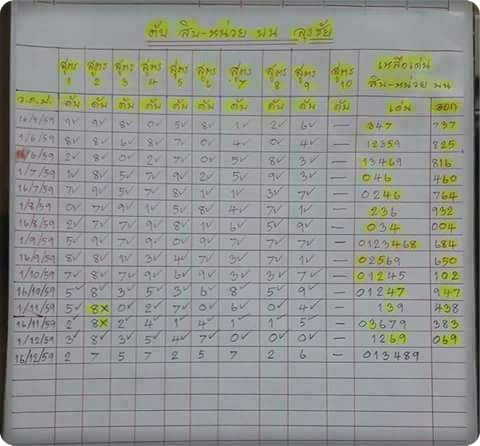 ดับ สิบ-หน่วย บน สุรชัย
สูตร สูตร สูตร สูตร สูตร สูตร สูตร สูตร สูตร สูตร เหลือเด่น
1 2 3 4 5 6 7 8 9 10 สิบ-หน่วย บน
ว.ด.ป. ดับ ดับ ดับ ดับ ดับ ดับ ดับ ดับ ดับ ดับ เด่น ออก
16/5/59 9✓ 9✓ 8✓ 0✓ 5✓ 8✓ 1✓ 2✓ 6✓ — 347 737
1/6/59 8✓ 8✓ 6✓ 8✓ 7✓ 0✓ 4✓ 0✓ 4✓ — 12359 825
16/6/59 2✓ 8✓ 0✓ 2✓ 7✓ 0✓ 5✓ 8✓ — 13469 816
1/7/59 1✓ 8✓ 5✓ 7✓ 9✓ 2✓ 5✓ 9✓ 3✓ — 046 460
16/7/59 7✓ 9✓ 5✓ 7✓ 8✓ 1✓ 1✓ 3✓ 7✓ — 0246 764
1/8/59 0✓ 7✓ 9✓ 1✓ 5✓ 8✓ 4✓ 7✓ 1✓ — 236 932
16/8/59 2✓ 7✓ 7✓ 9✓ 8✓ 1✓ 6✓ 5✓ 9✓ — 034 004
1/9/59 5✓ 9✓ 7✓ 9✓ 9✓ 7✓ 7✓ 7✓ — 0123468 684
16/9/59 8✓ 8✓ 1✓ 3✓ 4✓ 7✓ 3✓ 7✓ 1✓ — 02569 650
1/10/59 7✓ 8✓ 7✓ 9✓ 6✓ 9✓ 3✓ 3✓ 7✓ — 01245 102
16/10/59 5✓ 8✓ 3✓ 5✓ 3✓ 6✓ 8✓ 5✓ 9✓ — 01247 947
1/11/59 5✓ 8× 0✓ 2✓ 7✓ 0✓ 6✓ 0✓ 4✓ — 139 438
16/11/59 2✓ 8× 2✓ 4✓ 1✓ 4✓ 1✓ 1✓ 5✓ — 03679 383
1/12/59 3✓ 8✓ 3✓ 5✓ 4✓ 7✓ 0✓ 0✓ 0✓ — 1269 069
16/12/59 2 7 5 7 2 5 7 2 6 — 013489